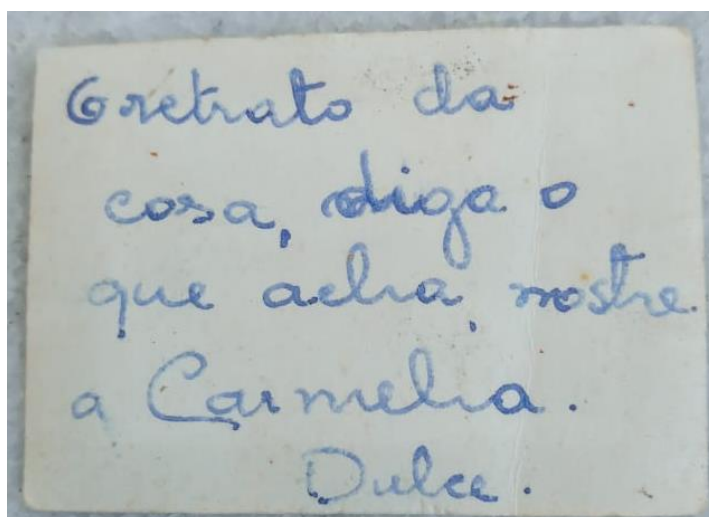 O retrato da
casa, diga o
que acha, mostre
a Carmelia.
Dulce.